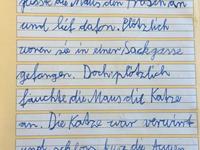 die Maus den
und lief dafon. Plötzlich
waren sie in einer Sackgasse
gefangen. Doch plötzlich
fauchte die Maus die Katze
an. Die Katze war verwirrt
und schloss kurz die Augen